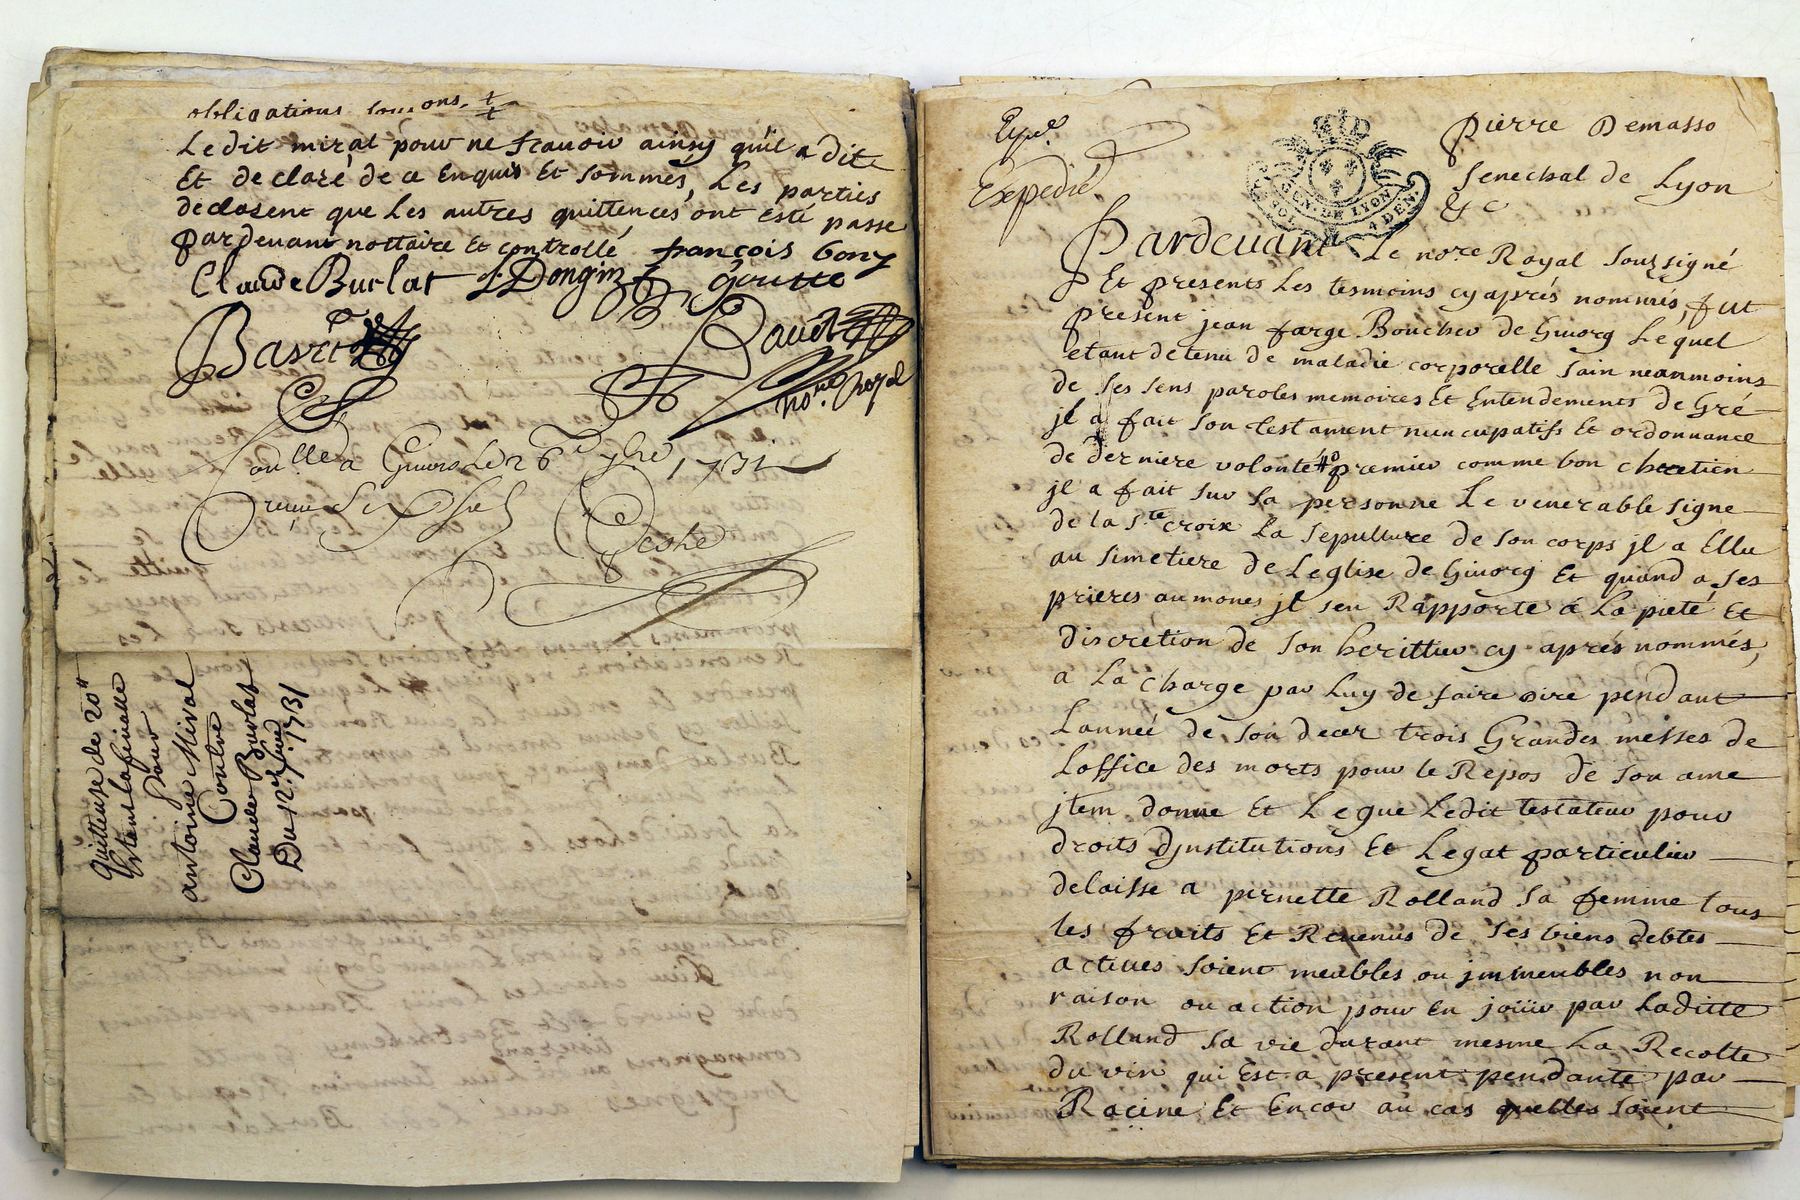 obligations
Ledit miral pour ne scavoir ainsy quil a dit
Et declaré de ce Enquis Et sommés, Les parties
declarent que Les autres quittences ont esté passe
pardevant nottaire Et controllé françois bony
Claude Burlat Dongin goutte
Basset Ravet
no.re Royal
Con.llé a Givors Le 26 7bre 1731
Quittense de 20#
Pour
antoine Miral
Contre
Claude Burlat
Du 12e 7bre 1731
Expedié
Pierre Demasso
Senechal de Lyon
&c
GEN. DE LYON
SOL 4 DEN.
Pardevant Le nore Royal soussigné
Et presents Les tesmoins cy aprés nommés, fut
present jean farge Boucher de Givorg Lequel
etant detenu de maladie corporelle sain neanmoins
de ses sens paroles memoires Et Entendements de Gré
jl a fait son testament nuncupatifs Et ordonnance
de derniere volonté premier comme bon chretien
jl a fait sur sa personne Le venerable signe
de la s.te croix La sepulture de son corps jl a Ellu
au simetiere de Leglise de Givorg Et quand a ses
prieres aumones jl sen Rapporte á La pieté Et
discretion de son herittier cy aprés nommés,
a La charge par Luy de faire dire pendant
Lanneé de son decer trois Grandes messes de
Loffice des morts pour le Repos de son ame
jtem donne Et Legue Ledit testateur pour
droits djnstitutions Et Legat particulier
delaisse a pernette Rolland sa femme tous
les fruits Et Revenus de ses biens debtes
actives soient meubles ou jmmeubles non
raison ou action pour En joüir par Laditte
Rolland sa vie durant mesme La Recolte
du vin qui Est a present pendante par
Racine Et Encor au cas quelles soient